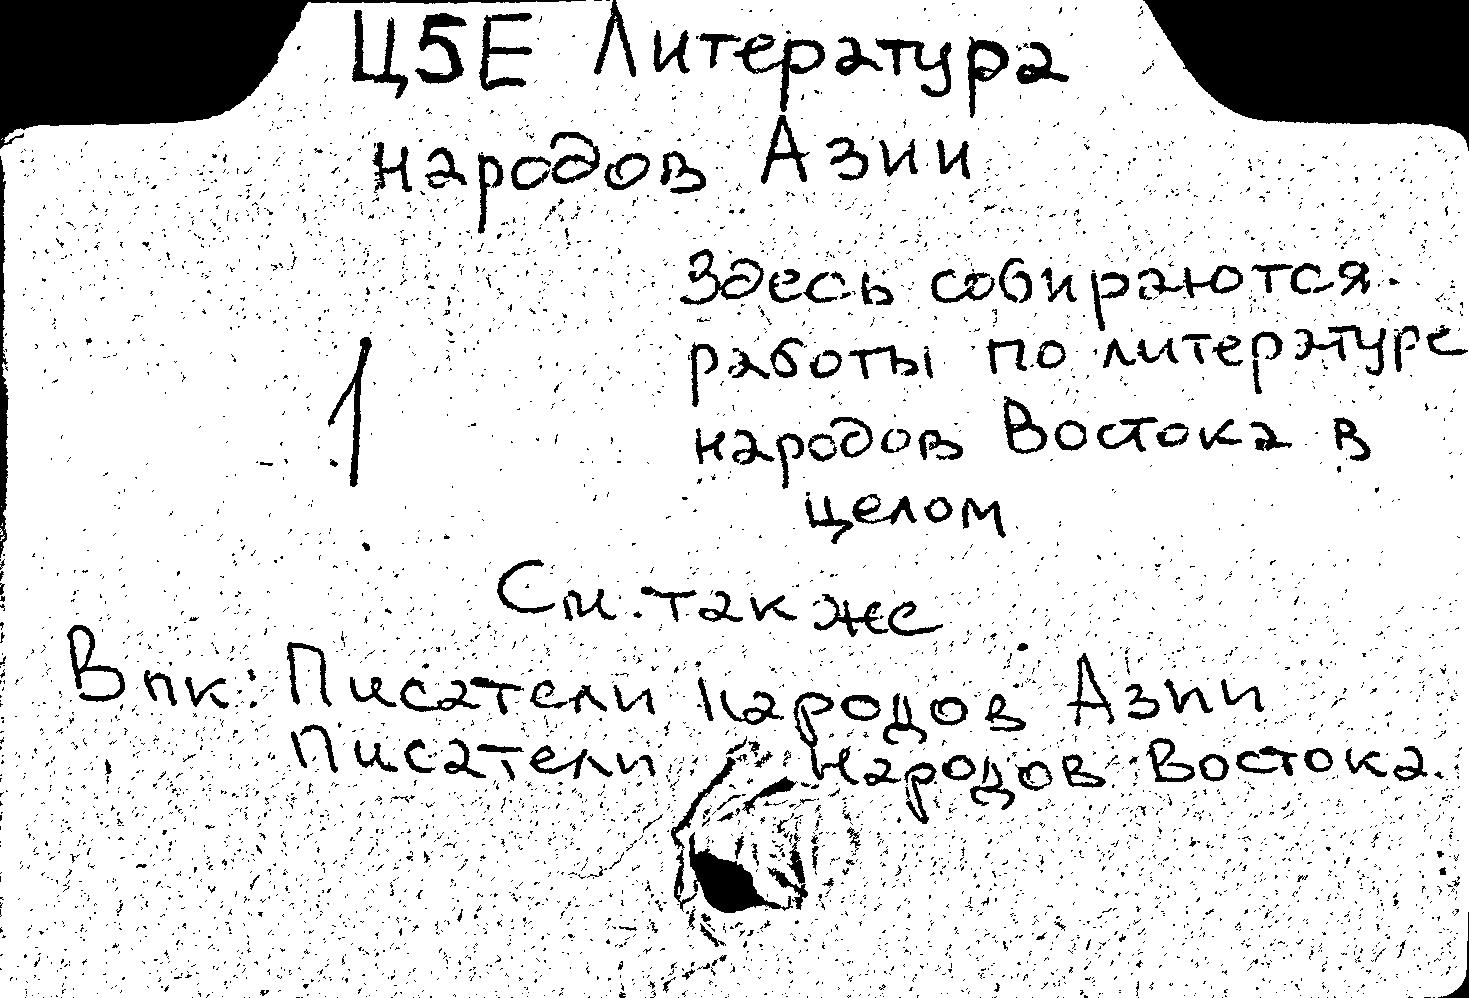 Ц5Е Литература
народов Азии
Здесь собираются
работы по литературе
1
народов Востока в
целом
См. также
В пк: Писатели народов Азии
Писатели народов Востока.